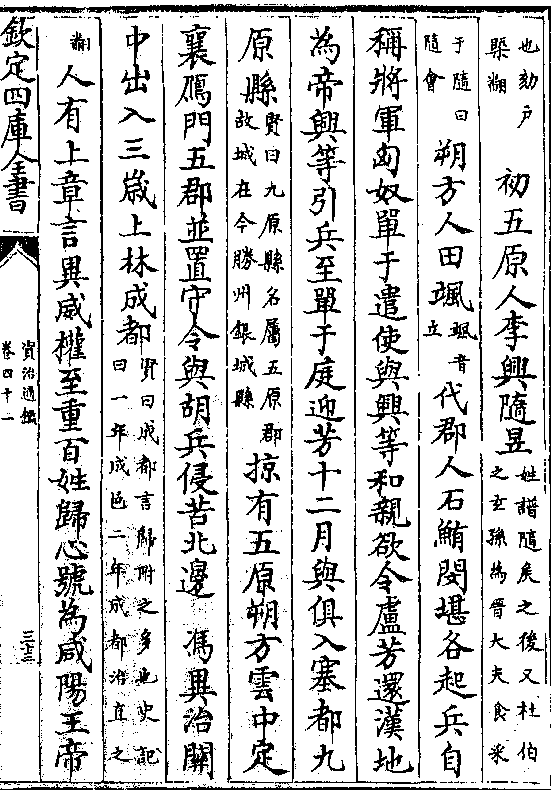 也劾戸
槩翻
初五原人李興隨昱
姓譜隨矦之後又杜伯
之玄孫為晋大夫食采
于隨曰
隨會
朔方人田颯
颯音
立
代郡人石鮪閔堪各起兵自
稱將軍匈奴單于遣使與興等和親欲令盧芳還漢地
為帝興等引兵至單于庭迎芳十二月與俱入塞都九
原縣
賢曰九原縣名屬五原郡
故城在今勝州銀城縣
掠有五原朔方雲中定
襄鴈門五郡並置守令與胡兵侵苦北邊 馮異治關
中出入三歲上林成都
賢曰成都言歸附之多也史記
曰一年成邑二年成都治直之
翻
人有上章言異威權至重百姓歸心號為咸陽王帝
欽定四庫全書
資治通鑑
卷四十一
三十三